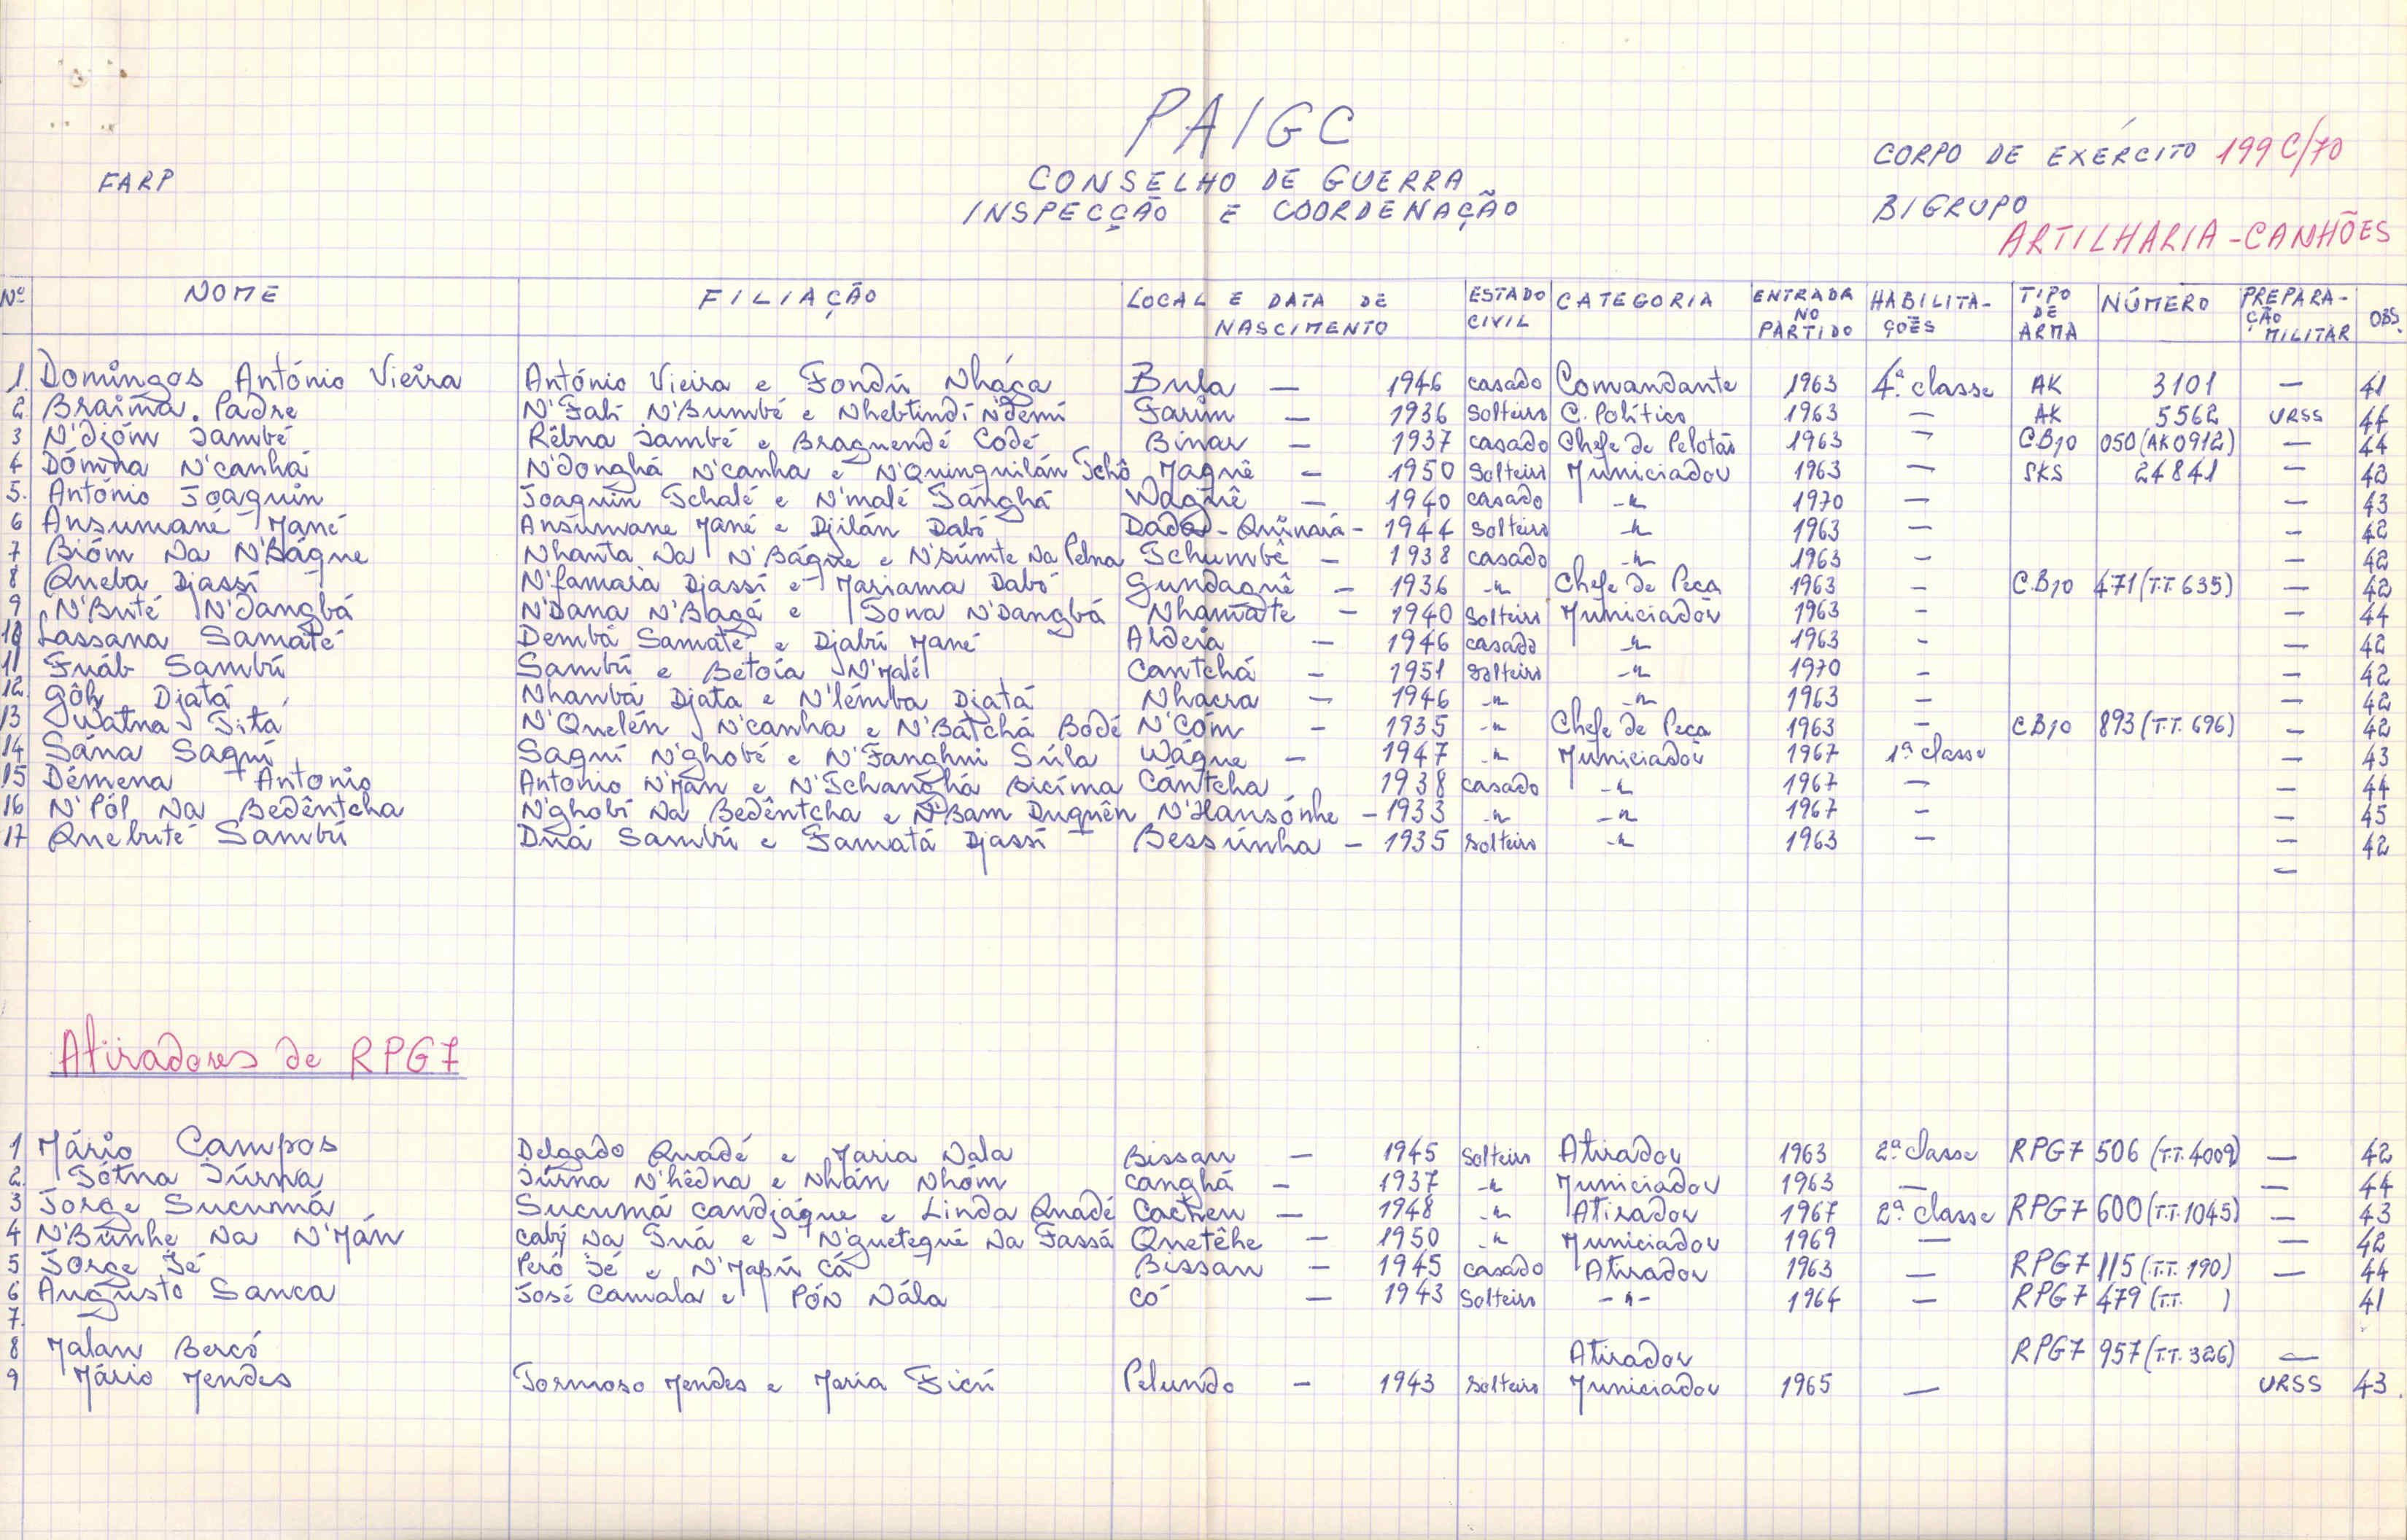 PAIGC
FARP
CONSELHO DE GUERRA
INSPECÇÃO E COORDENAÇÃO
CORPO DE EXÉRCITO 199 C/70
BIGRUPO
ARTILHARIA - CANHÕES
Nº NOME FILIAÇÃO LOCAL E DATA DE NASCIMENTO ESTADO CIVIL CATEGORIA ENTRADA NO PARTIDO HABILITAÇÕES TIPO DE ARMA NÚMERO PREPARAÇÃO MILITAR OBS.
1. Domingos António Vieira António Vieira e Fondú Nhága Bula — 1946 casado Comandante 1963 4ª classe AK 3101 — 41
2. Braima Padre N'Fali N'Bumbé e Nhebtindi N'demi Farim — 1936 Solteiro C. Político 1963 — AK 5562 URSS 44
3 N'djóm Sambé Rêbna Sambé e Braguendé Codé Binar — 1937 casado Chefe de Pelotão 1963 — CB10 050 (AK0912) — 44
4 Dómna N'canhá N'donghá N'canha e N'Quinquilán Tchô Maquê — 1950 Solteiro Municiador 1963 — SKS 24841 — 42
5. António Joaquin Joaquin Tchalé e N'malé Sánghá Waquê — 1940 casado -"- 1970 — — 43
6 Ansumané Mané Ansumane Mané e Djilán Dabó - Quinará - 1944 Solteiro -"- 1963 — — 42
7 Bióm Na N'Bágne Nhanta Na N'Bágne e N'súmte Na Pelna Tchumbê — 1938 casado -"- 1963 — — 42
8 Queba Djassí N'famara Djassí e Mariama Dabó Gundaguê — 1936 -"- Chefe de Peça 1963 — C.B10 471 (T.T. 635) — 42
9 N'Brité N'dangbá N'Dana N'Bagé e Tona N'Dangbá Nhamate — 1940 Solteiro Municiador 1963 — — 44
10 Lassana Samaté Dembá Samaté e Djabú Mané Aldeia — 1946 casado -"- 1963 - — 42
11 Fuáb Sambú Sambú e Betoía N'Malé Cantchá — 1951 Solteiro -"- 1970 - — 42
12. Gôh Djatá Nhambá Djata e N'lémba Djatá Nhacra — 1946 -"- -"- 1963 - — 42
13 Watna Sita N'Quelén N'canha e N'Batchá Bodé N'Cóm — 1935 -"- Chefe de Peça 1963 - CB10 893 (T.T. 696) — 42
14 Sána Saquí Saquí N'ghobé e N'Fanghni Súla Wáque — 1947 -"- Municiador 1967 1ª classe — 43
15 Démena Antonio Antonio N'Mán e N'Tchanghá Bicíma Cántcha 1938 casado -"- 1967 — — 44
16 N'Pól Na Bedêntcha N'ghobí Na Bedêntcha e N'Bam Duquên N'Hansónhe — 1933 -"- -"- 1967 - — 45
17 Quebuté Sambú Duá Sambú e Famatá Djassí Bessúnha — 1935 Solteiro -"- 1963 — — 42
—
Atiradores de RPG7
1 Mário Campos Delgado Quadé e Maria Nala Bissau — 1945 Solteiro Atirador 1963 2ª classe RPG7 506 (T.T. 4009) — 42
2. Tótna Súrna Súrna N'hêdna e Nhán Nhóm Canghá — 1937 -"- Municiador 1963 — — 44
3 Jorge Sucumá Sucumá Candjáque e Linda Quadé Cacheu — 1948 -"- Atirador 1967 2ª classe RPG7 600 (T.T. 1045) — 43
4 N'Búnhe Na N'Mán Na Tuá e N'guetequé Na Fassá Quetêhe — 1950 -"- Municiador 1969 — — 42
5 Jorge Sé Peró Sé e N'Mapú Cá Bissau — 1945 casado Atirador 1963 — RPG7 115 (T.T. 190) — 44
6 Augusto Sanca José Camala e Pón Nála Có — 1943 Solteiro -"- 1964 — RPG7 479 (T.T. ) 41
7.
8 Malan Bercó Atirador RPG7 957 (T.T. 326) —
9 Mário Mendes Formoso Mendes e Maria Ficú Pelundo — 1943 Solteiro Municiador 1965 — URSS 43.